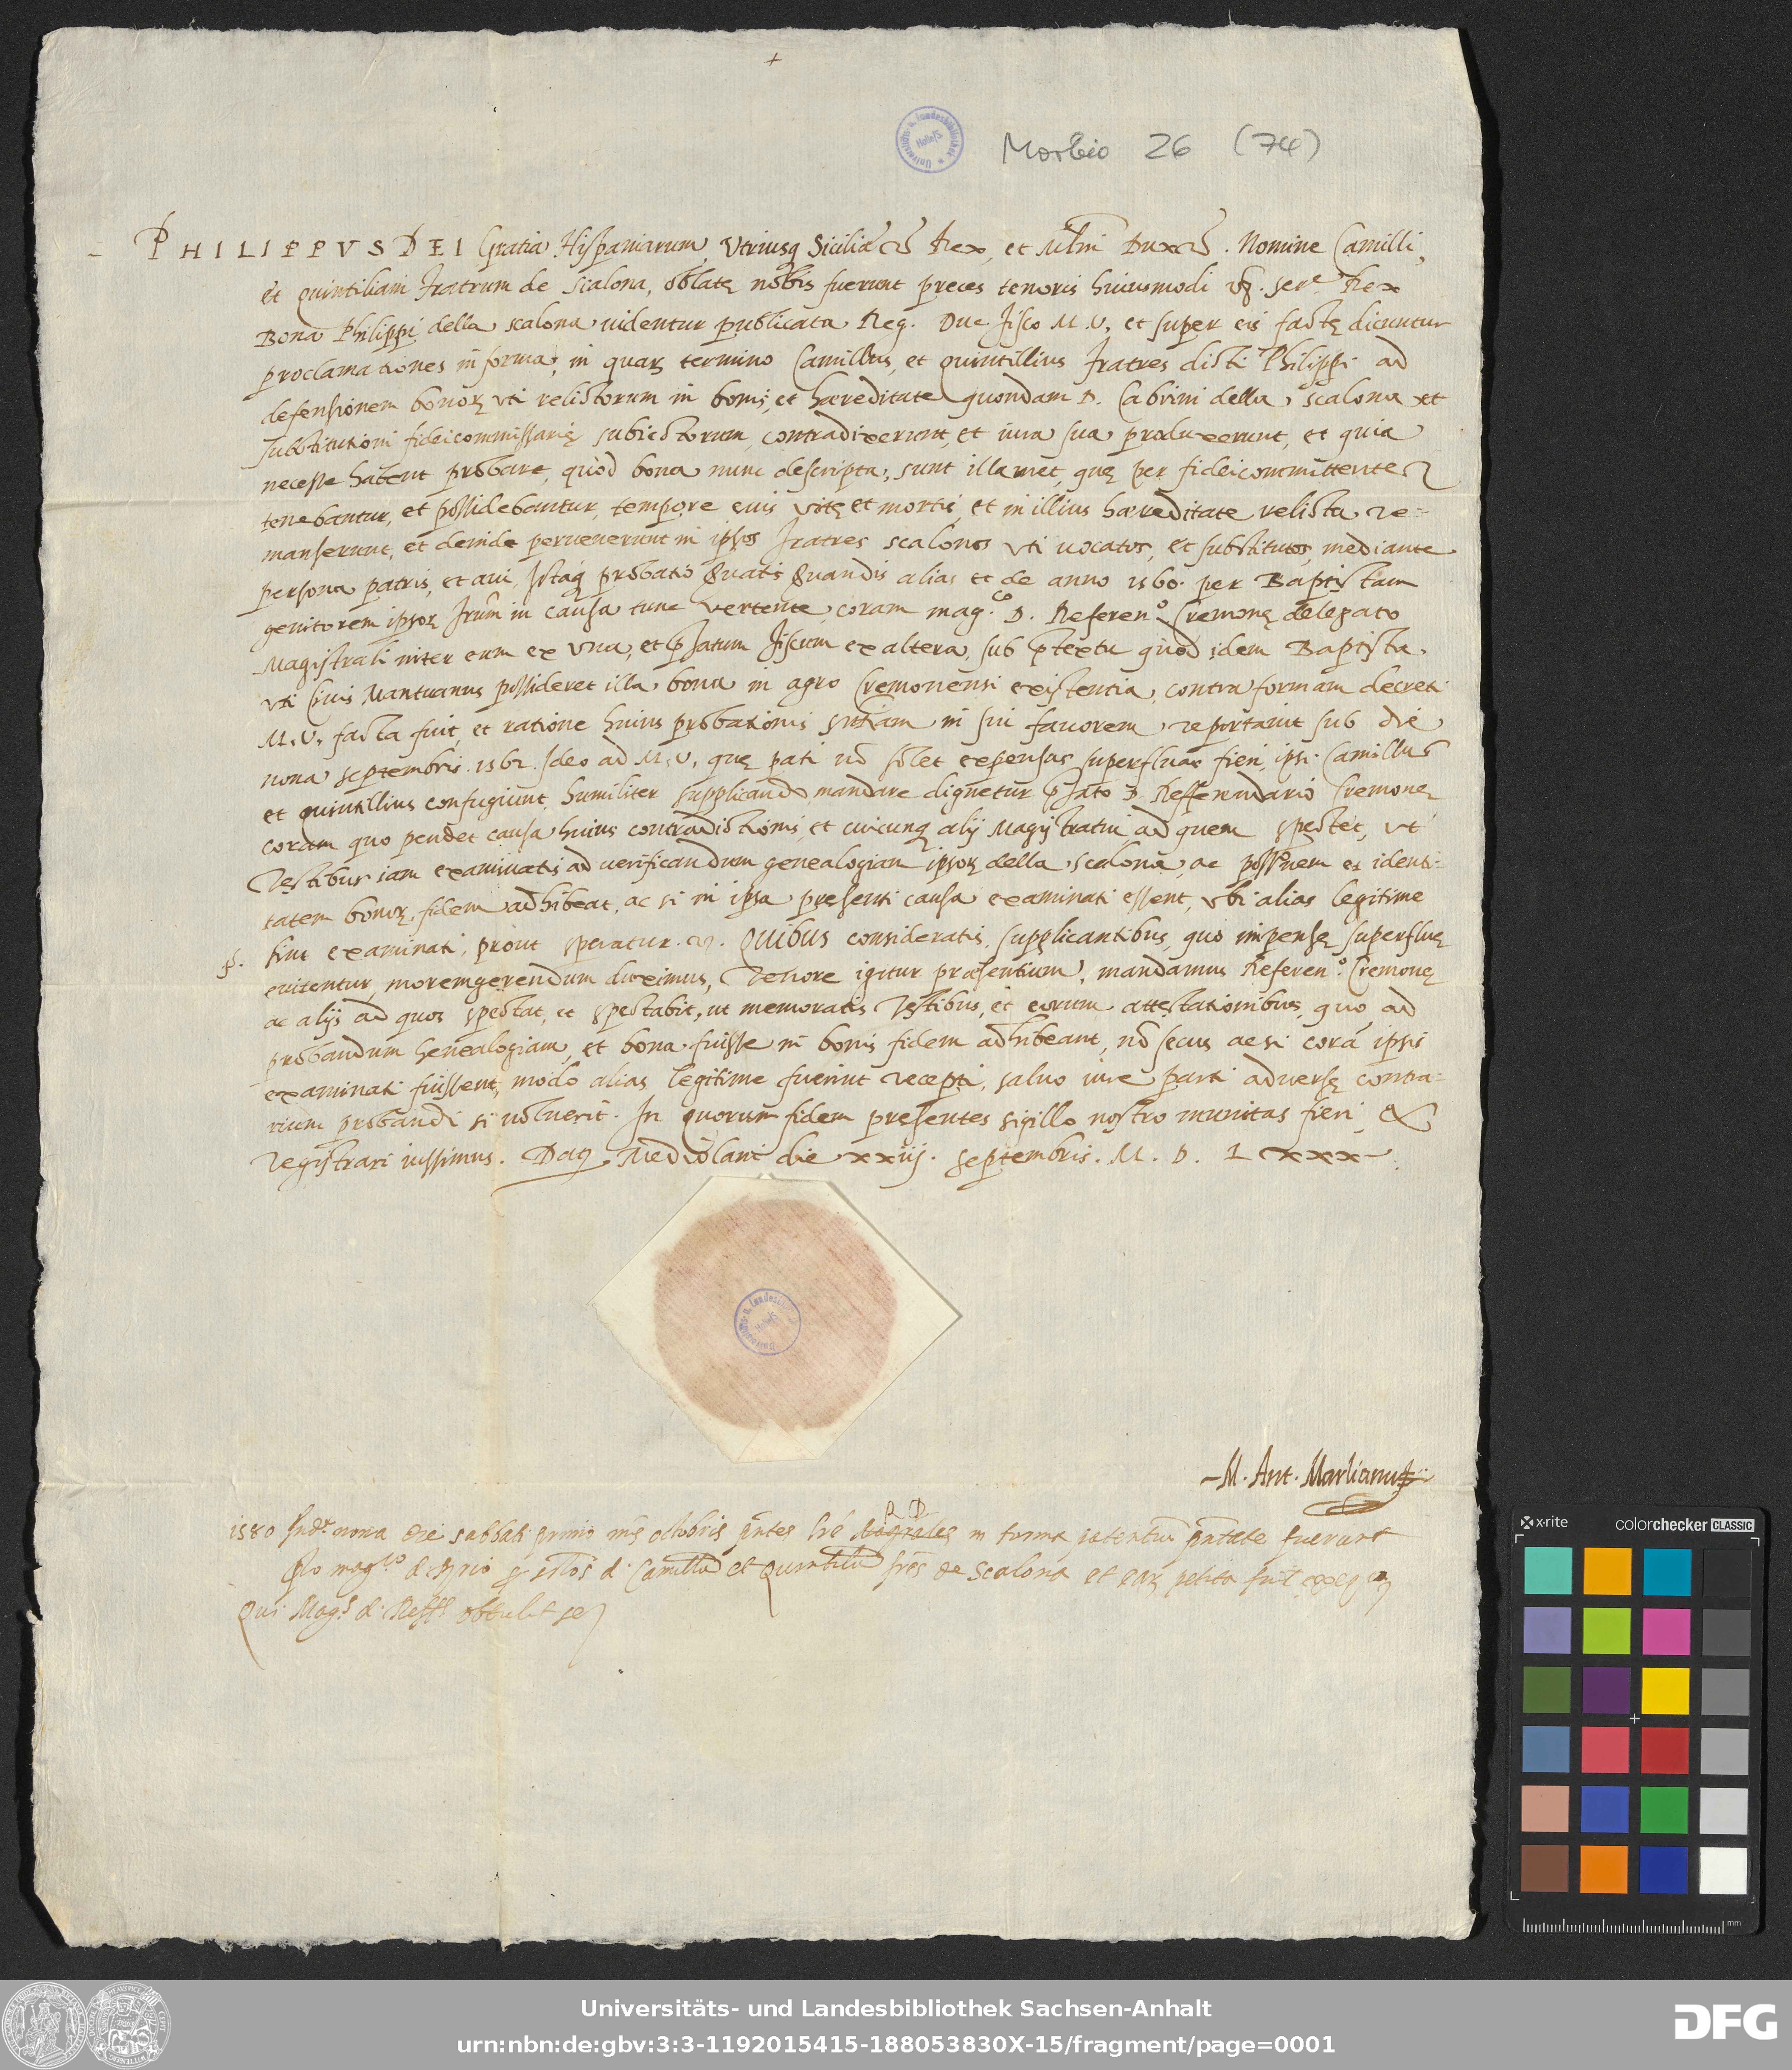 +
Morbio 26 (74)
PHILIPPVS DEI Gratia Hispaniarum, Vtriusq Siciliæ &c Rex, et Mlni Dux &c. Nomine Camilli,
et Quintiliani fratrum de Scalona, oblatę nobis fuerunt preces tenoris huiusmodi vz. Ser.e Rex
Bona Philippi della scalona uidentur publicata Reg. Duc. fisco M. V. et super eis factę dicuntur
proclamationes in forma, in quarꝫ termino Camillus, et Quintillius fratres dicti Philippi ad
defensionem bonorꝫ vti relictorum in bonis, et hæreditate quondam D. Cabrini della scalona et
substitutioni fideicommissarię subiectorum, contradixerunt, et iura sua produxerunt, et quia
necesse habent probare, quòd bona nunc descripta, sunt illamet, quę per fideicommittentes
tenebantur, et possidebantur, tempore euis vitę et mortis, et in illius hæreditate relicta re-
manserunt, et deinde peruenerunt in ipsos fratres scalonos vti uocatos, et substitutos, mediante
persona patris, et aui, Istaq probatio alias et de anno 1560. per Baptistam
genitorem ipsorꝫ frum in causa tunc vertente, coram mag.co D. Referen.o Cremonę delegato
Magistrali inter eum ex vna, et p̃fatum fiscum ex altera, sub p̃textu quòd idem Baptista
vti Ciuis Mantuanus possideret illa bona in agro Cremonensi existentia, contra formam decreti
M. V. facta fuit, et ratione huius probationis sntiam in sui fauorem reportauit sub die
nona septembris 1562. Ideo ad M. V. quę pati nõ solet expensas superfluas fieri, ipsi Camillus
et Quintillius confugiunt, humiliter supplicando, mandare dignetur p̃fato D. Refferendario Cremonę
coram quo pendet causa huius contradictionis, et cuicunq alij Magistratui ad quem spectet, vt
Testibus iam examinatis ad uerificandum genealogiam ipsorꝫ della scalona, ac possnem et identi-
tatem bonorꝫ fidem adhibeat, ac si in ipsa presenti causa examinati essent, vbi alias legitime
sint examinati, prout speratur. &c. QUIBUS consideratis, supplicantibus, quo impensę superfluę
euitentur, moremgerendum duximus, Tenore igitur præsentium, mandamus Referen.o Cremonę
ac alijs ad quos spectat, et spectabit, ut memoratis Testibus, et eorum attestationibus, quo ad
probandum genealogiam, et bona fuisse in bonis fidem adhibeant, nõ secus ac si corã ipsis
examinati fuissent, modo alias legitime fuerint recepti, saluo iure parti aduersę contra-
rium probandi si uoluerit. In quorum fidem presentes sigillo nostro munitas fieri, &
registrari iussimus. Datꝫ Mediolani die xxiij. septembris. M. D. Lxxx.
M. Ant. Marlianus
R D
1580 Ind.e nona die sabbati primo mẽs octobris p̃ntes lrẽ in forma patentiũ p̃ntate fuerunt
mag.co d. d. Camillo et Quintilio frẽs de Scalona et earꝫ petita fuit
Qui Mag.s d. Reff.s obtulit se
Universitäts- und Landesbibliothek Sachsen-Anhalt
urn:nbn:de:gbv:3:3-1192015415-188053830X-15/fragment/page=0001
DFG
x-rite
colorchecker CLASSIC
mm